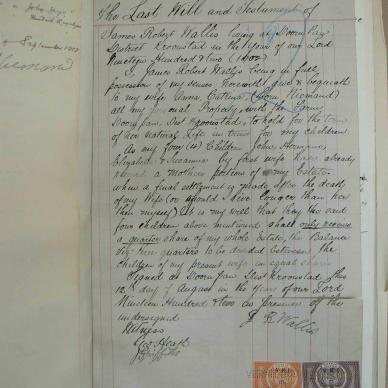 The Last Will and Testament of
James Robert Wallis living at Doorn Pan
District Kroonstad in the Year of our Lord
Nineteen Hundred & two (1902)
I, James Robert Wallis being in full
possession of my senses Herewith give & bequeath
to my wife Anna, Catrina, (born Niemand)
all my Property, with the Farm
Doorn pan, Dist Kroonstad, to hold for the term
of her natural Life in trust for my children
As my four (4) Children John,
Elizabeth & Susanna by first wife have already
a Mothers portions of my Estate
when a final settlement is made after the death
of my Wife (or should I live longer than her
then myself) it is my will that they the said
four children above mentioned shall only receive
a quarter share of my whole Estate, the Balance
viz three quarters to be divided between the
children of my present wife in equal shares
Signed at Doorn Pan Dist Kroonstad this
12th day of August in the Year of our Lord
Nineteen Hundred & two in presence of the
undersigned
J R Wallis
Witness
Geo Heath
J Griffiths